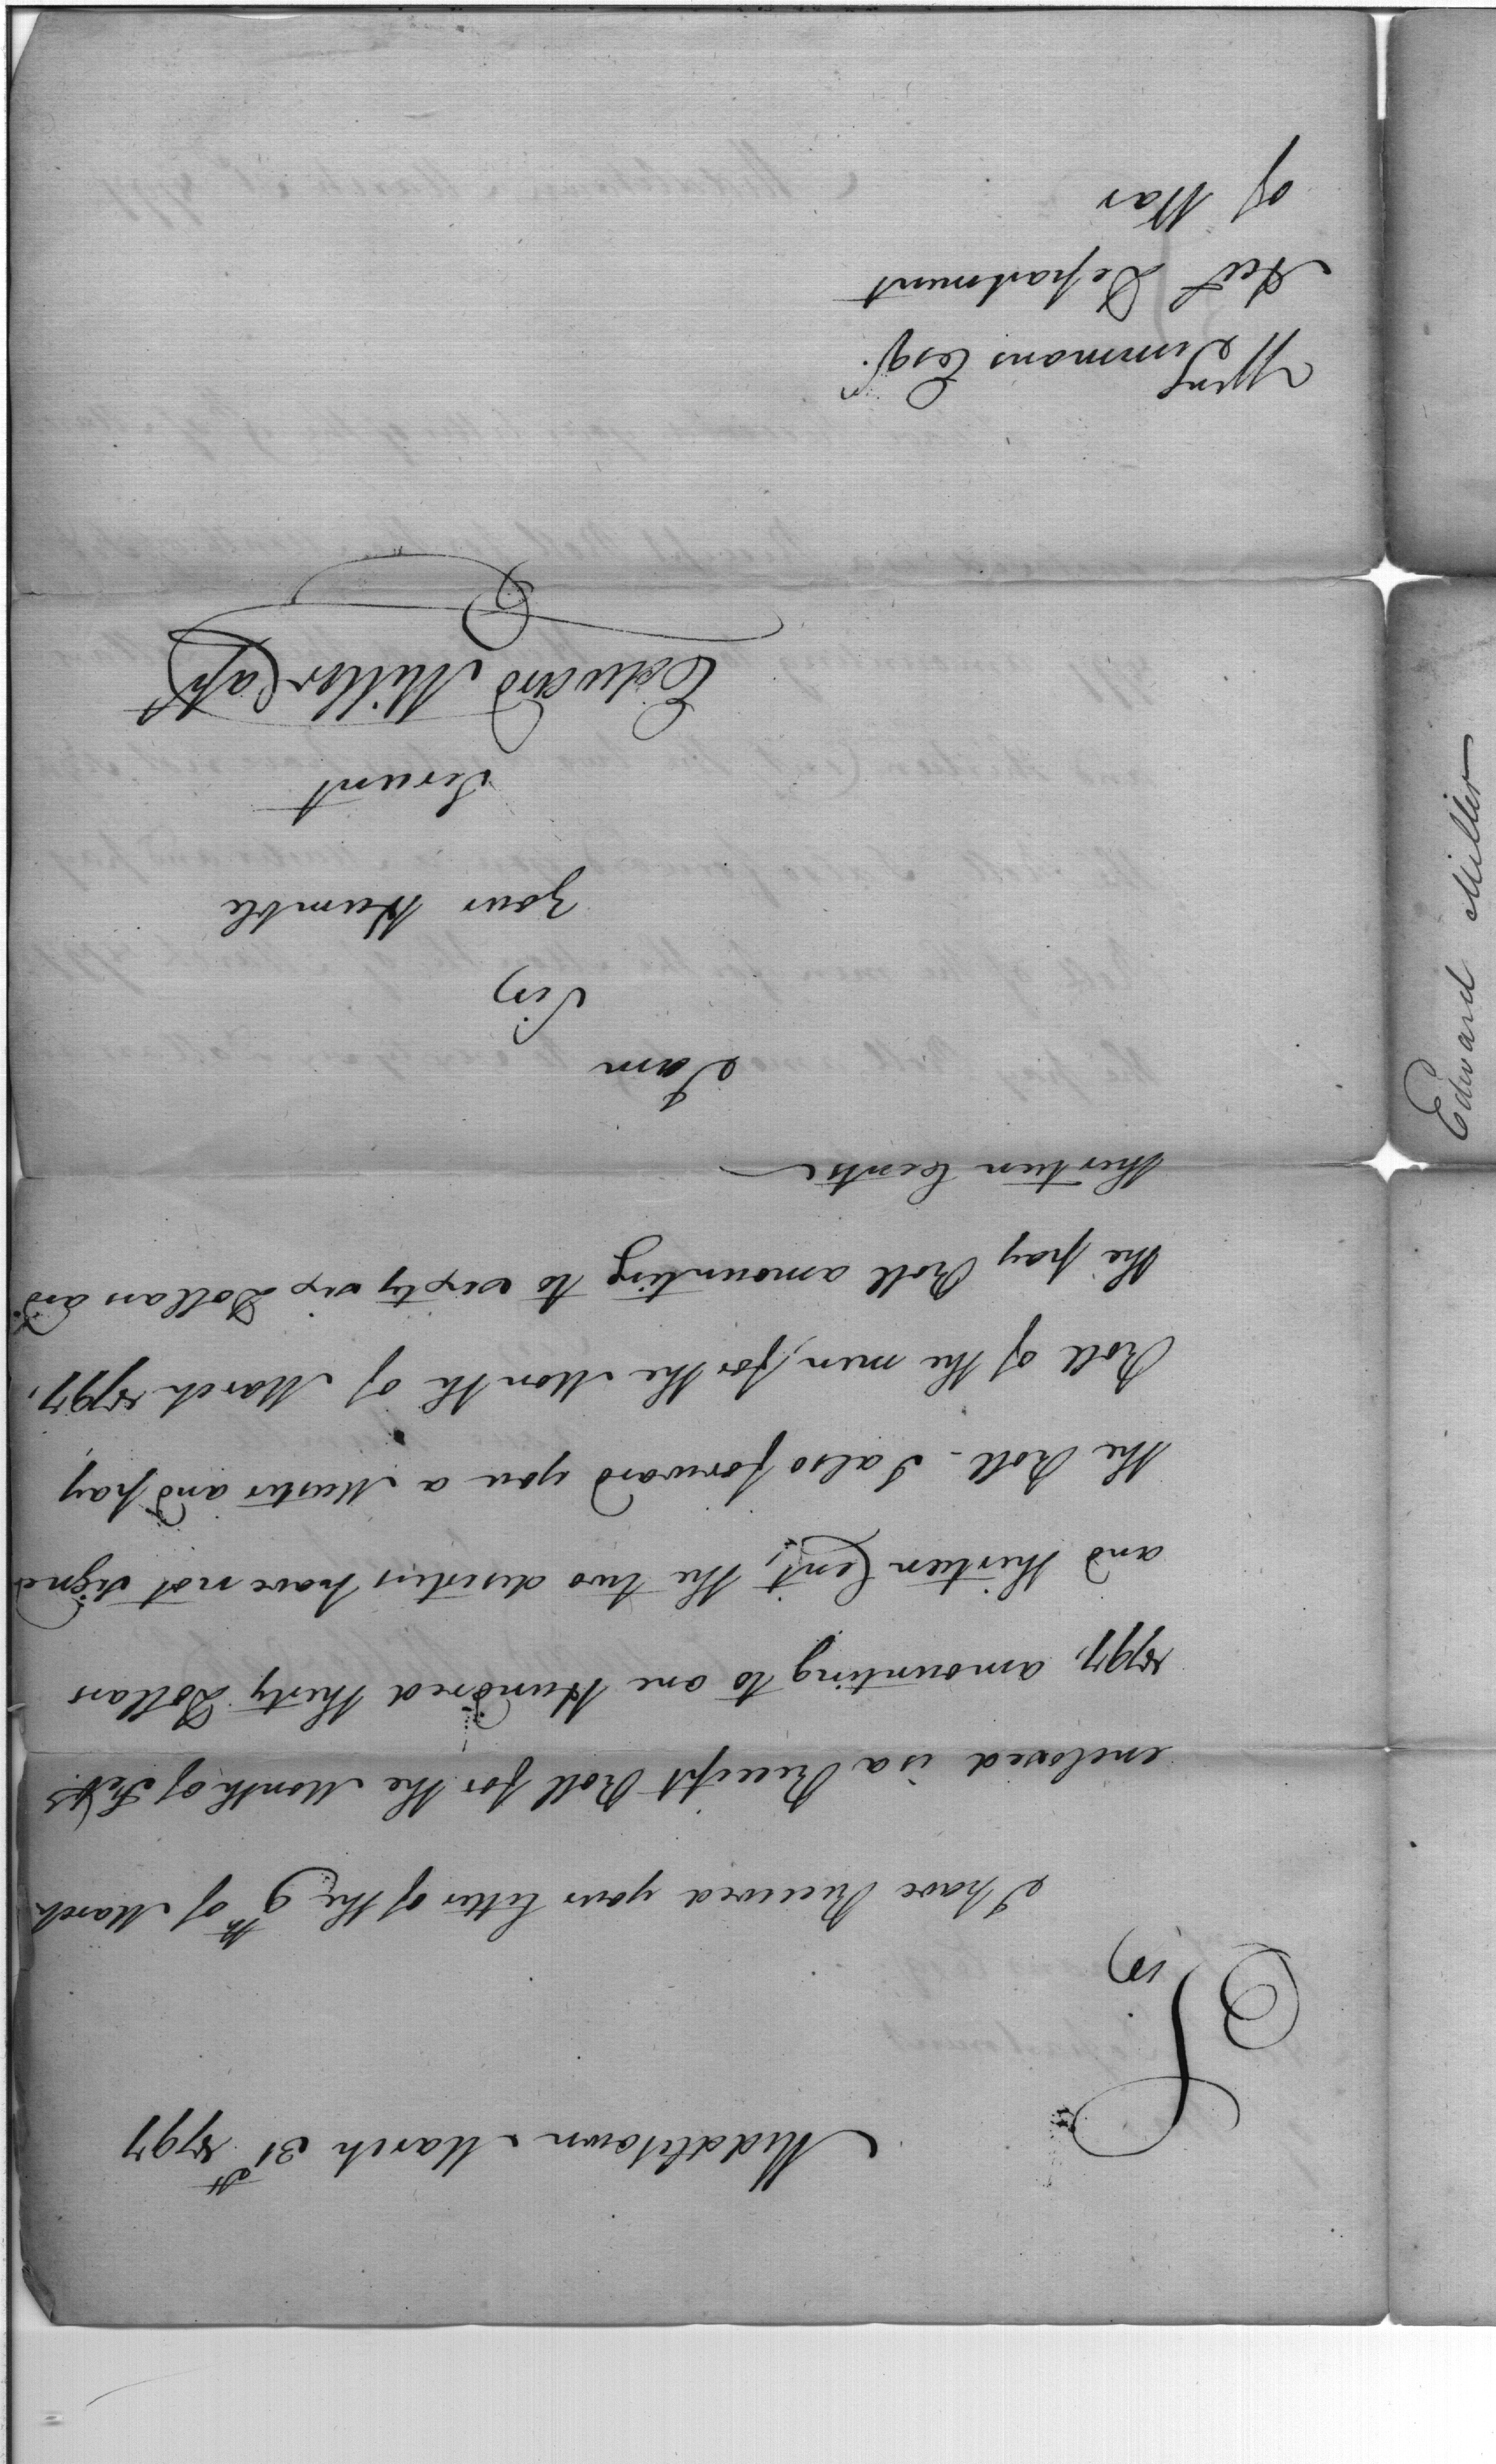 Middletown March 31st 1797
Sir
I have Received your letter of the 9th of March
enclosed is a Receipt Roll for the Month of Feby
1797, amounting to one Hundred thirty Dollars
and thirteen Cent, the two deserters have not signed
the Roll - I also forward you a Muster and pay
Roll of the men, for the Month of March 1797,
the pay Roll amounting to sixty six Dollars and
thirteen Cents
I am
Sir
your Humble
Servent
Edward Miller Capt
Wm Simmons Esqr.
Act Department
of War
Edward Miller